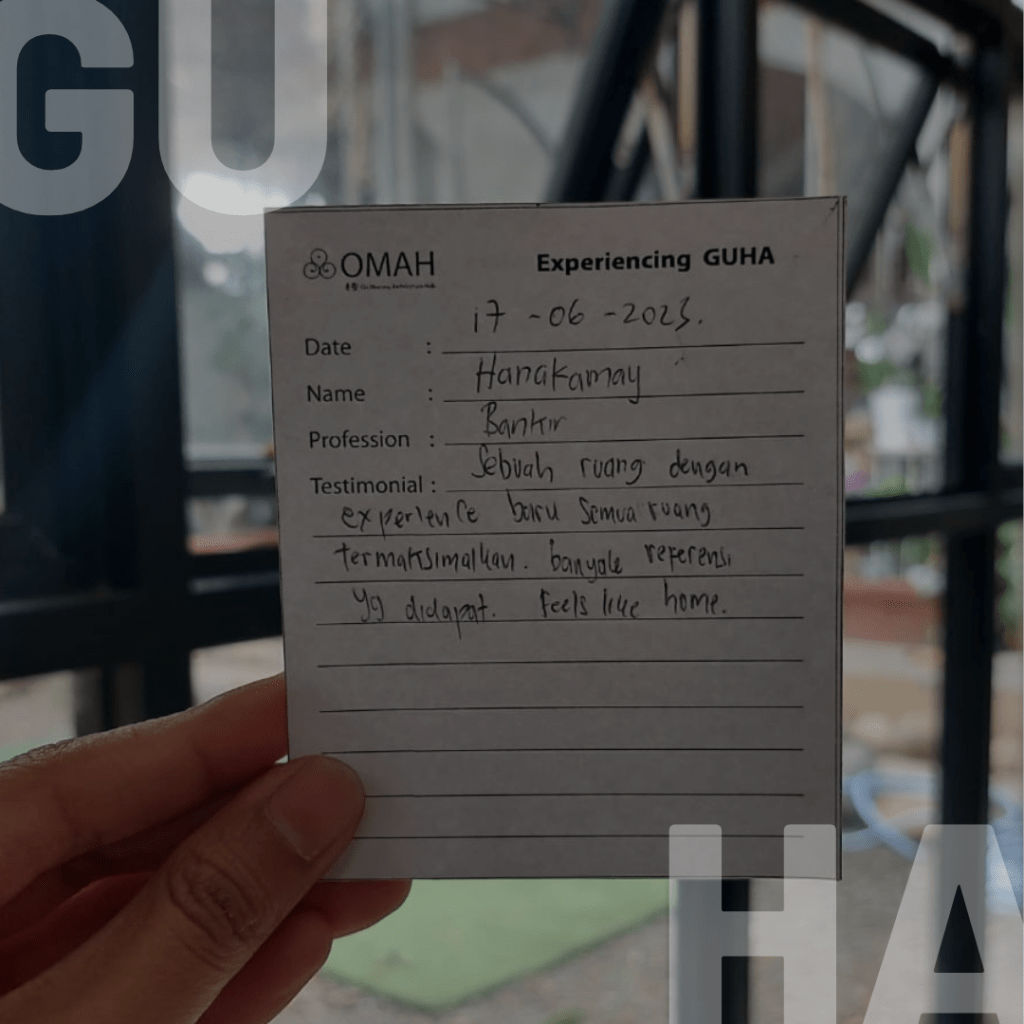 GU
OMAH
Experiencing GUHA
Date : 17-06-2023.
Name : Hanakamay
Profession : Bankir
Testimonial : Sebuah ruang dengan
experience baru semua ruang
termaksimalkan. banyak referensi
yg didapat. Feels like home.
HA